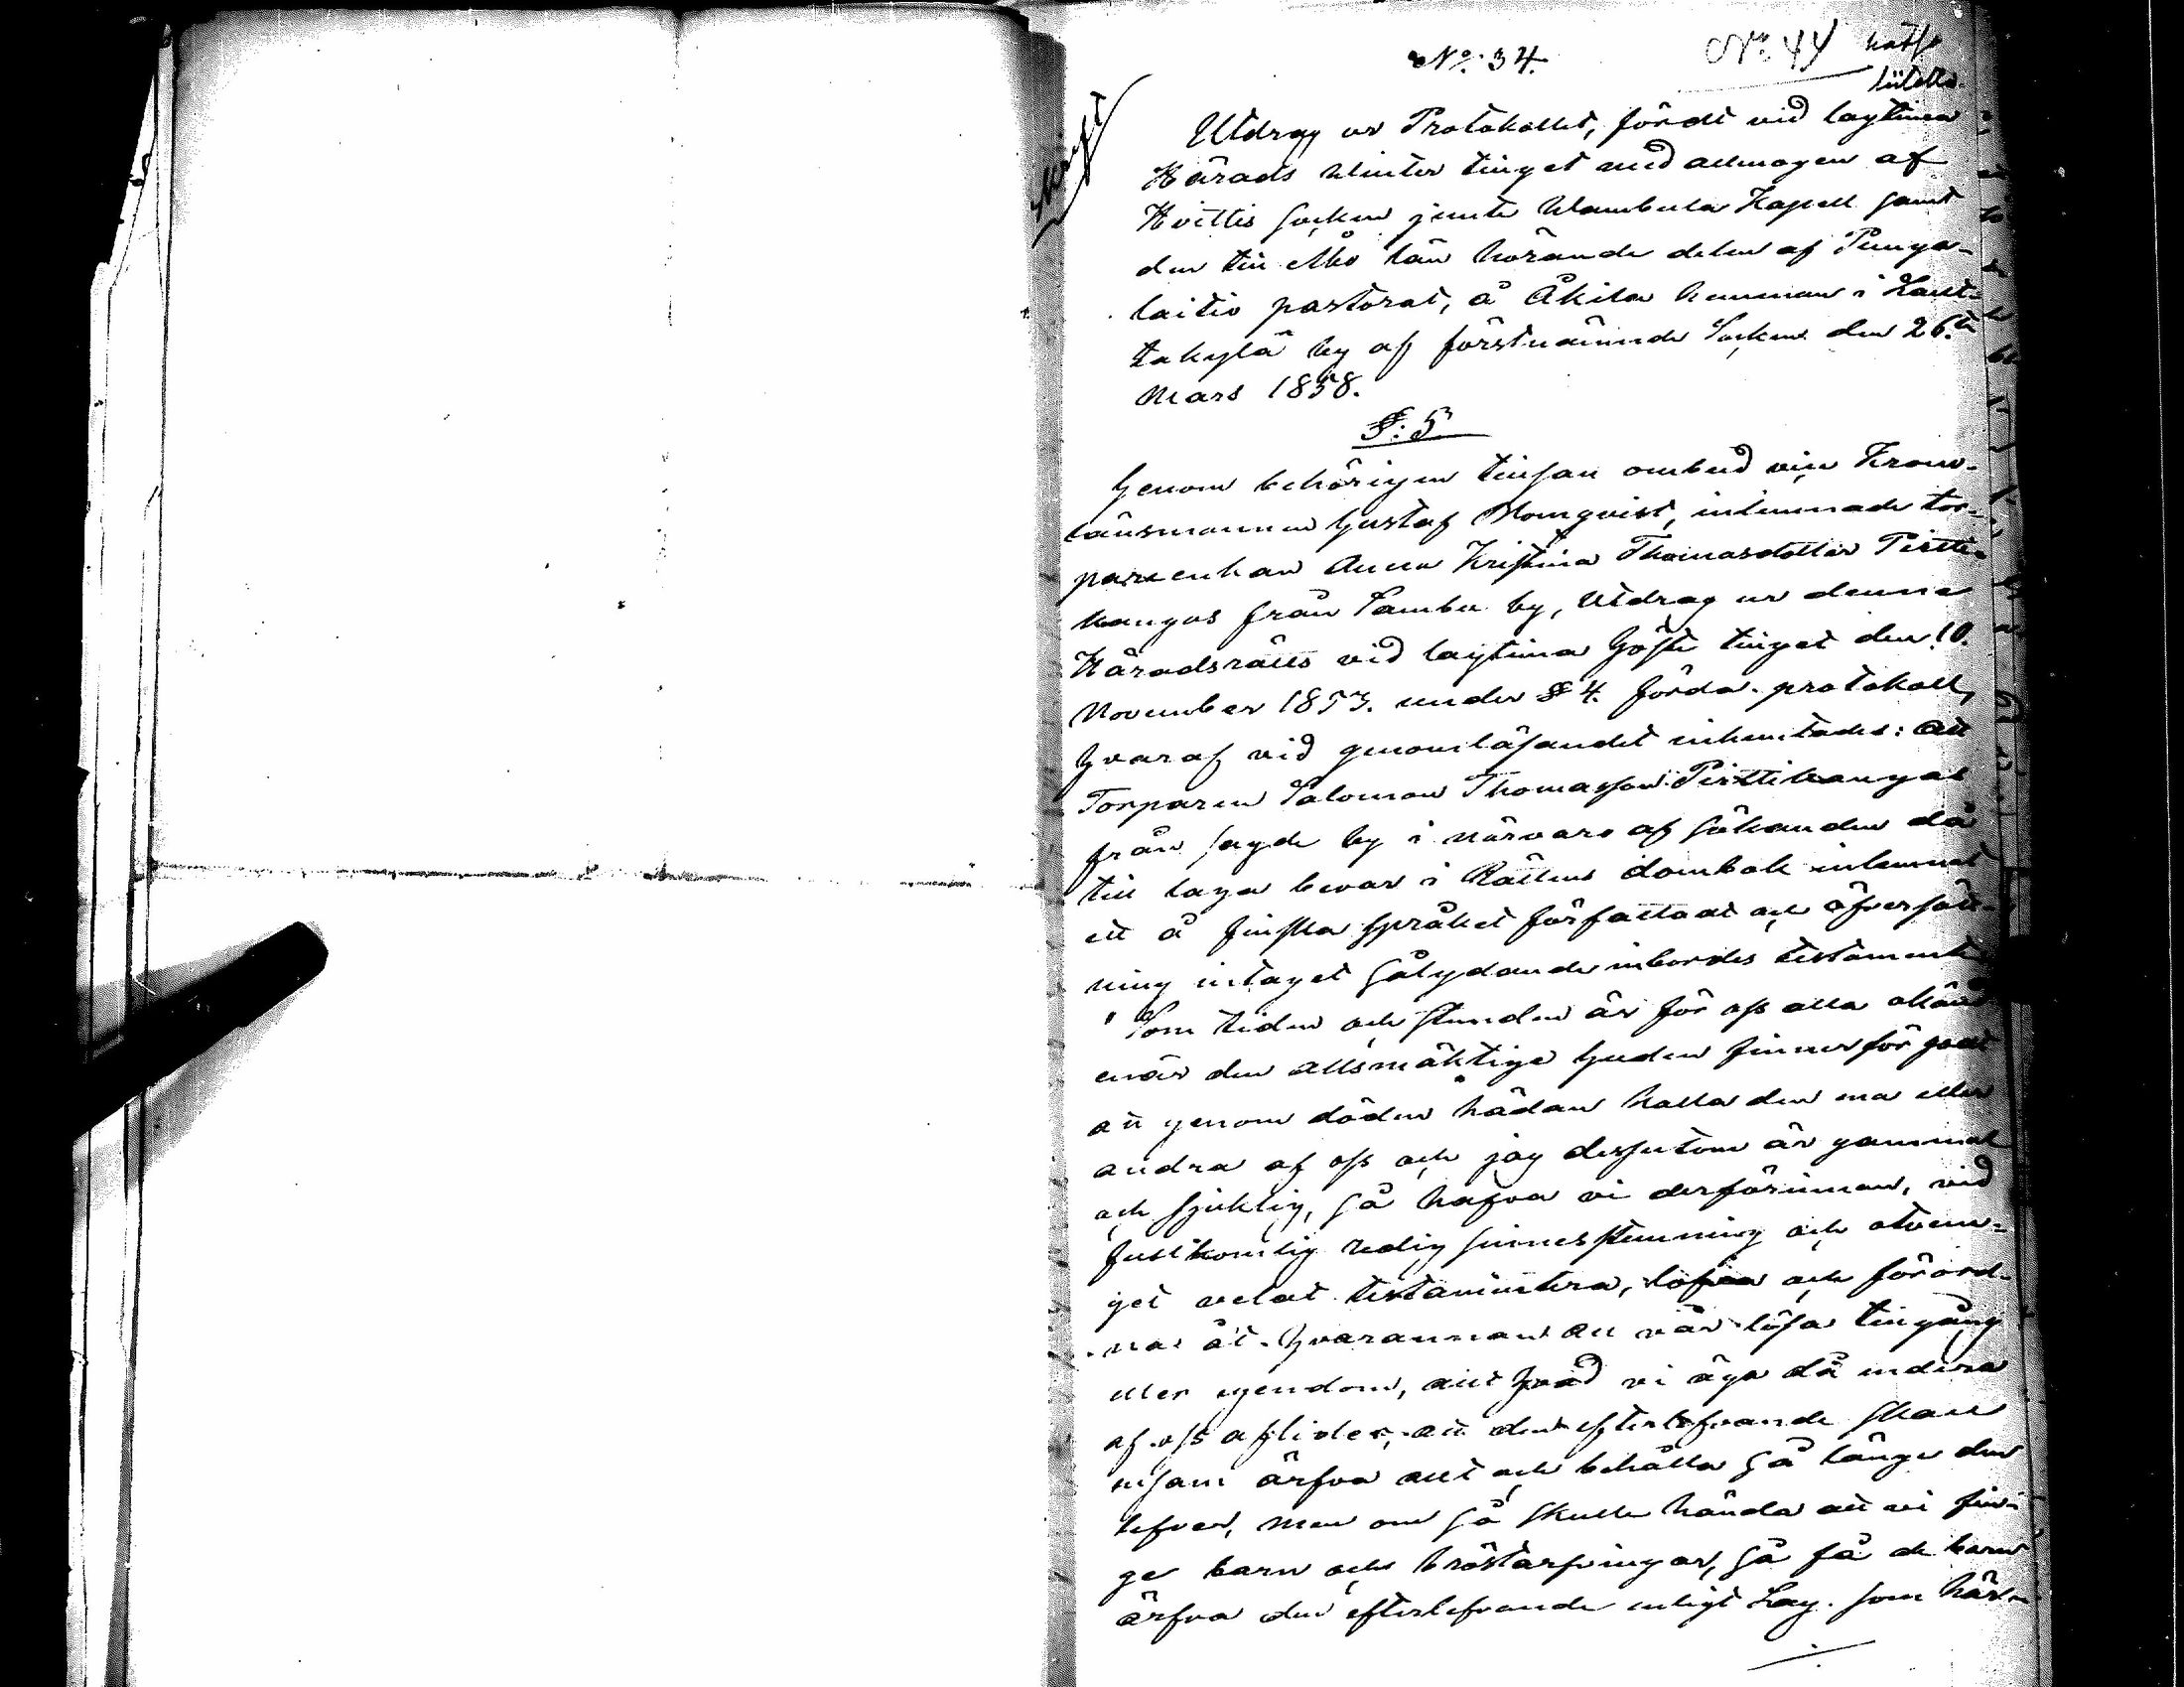 No: 34.
No: 44 katso
Utdrag ur Protokollet, fördt vid lagtima
Härads Winter tinget med allmogen af
Hvittis socken jemte Wambula Kapell samt
den till Åbo län hörande delen af Punga-
laitio pastorat, å Äkila hemman i Laut-
takylä by af förstnämnde Socken den 26te
Mars 1858.
§: 5
Genom behörigen tillsatt ombud vice Krono-
länsmannen Gustaf Blomqvist, inlemnade tor-
pareenkan Anna Kristina Thomasdotter Pirtti-
kangas från Sambu by, Utdrag ur denne
Häradsrätts vid lagtima Höste tinget den 10.
November 1853. under § 4. förda protokoll,
hvaraf vid genomläsandet inhemtades: att
Torparen Salomon Thomasson Pirttikangas
från sagde by i närvaro af sökanden då
till laga bevar i Rättens dombok inlemnat
ett å finska språket författadt och i öfversätt-
ning intaget sålydande inbördes testamente
"Som tiden och stunden är för oss alla okänd
enär den allsmäktige Guden finner för godt
att genom döden hädan kalla den ena eller
andra af oss och jag dessutom är gammal
och sjuklig, så hafva vi derförinnan, vid
fullkomlig redig sinnesstämning och otvun-
get velat testamentera, lofva och förord-
na åt hvarannan all vår lösa tillgång
eller egendom, allt hvad vi äga då endera
af oss aflider, att den efterlefvande skall
ensam ärfva allt och behålla så länge den
lefver, men om så skulle hända att vi fin-
ge barn och bröstarfvingar, så få de barn
ärfva den efterlefvande enligt Lag. som här-